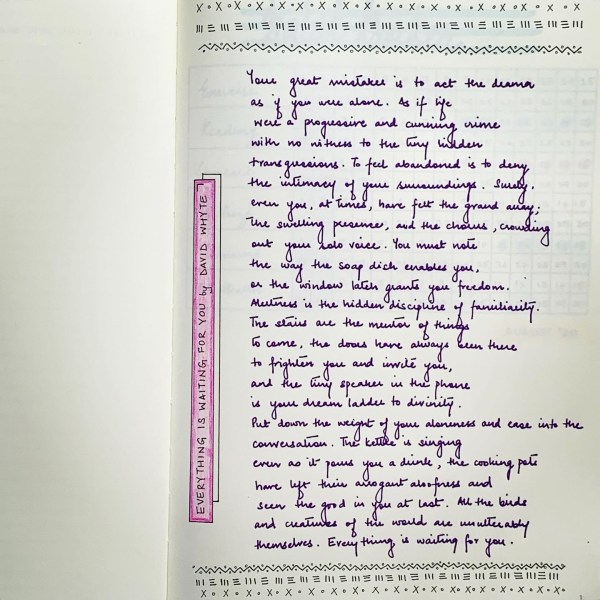 Your great mistakes is to act the drama
as if you were alone. As if life
were a progressive and cunning crime
with no witness to the tiny hidden
transgressions. To feel abandoned is to deny
the intimacy of your surroundings. Surely,
even you, at times, have felt the grand array;
the swelling presence, and the chorus, crowding
out your solo voice. You must note
the way the soap dish enables you,
or the window latch grants you freedom.
Alertness is the hidden discipline of familiarity.
The stairs are the mentor of things
to come, the doors have always been there
to frighten you and invite you,
and the tiny speaker in the phone
is your dream ladder to divinity.
Put down the weight of your aloneness and ease into the
conversation. The kettle is singing
even as it pours you a drink, the cooking pots
have left their arrogant aloofness and
seen the good in you at last. All the birds
and creatures of the world are unutterably
themselves. Everything is waiting for you.
EVERYTHING IS WAITING FOR YOU by DAVID WHYTE